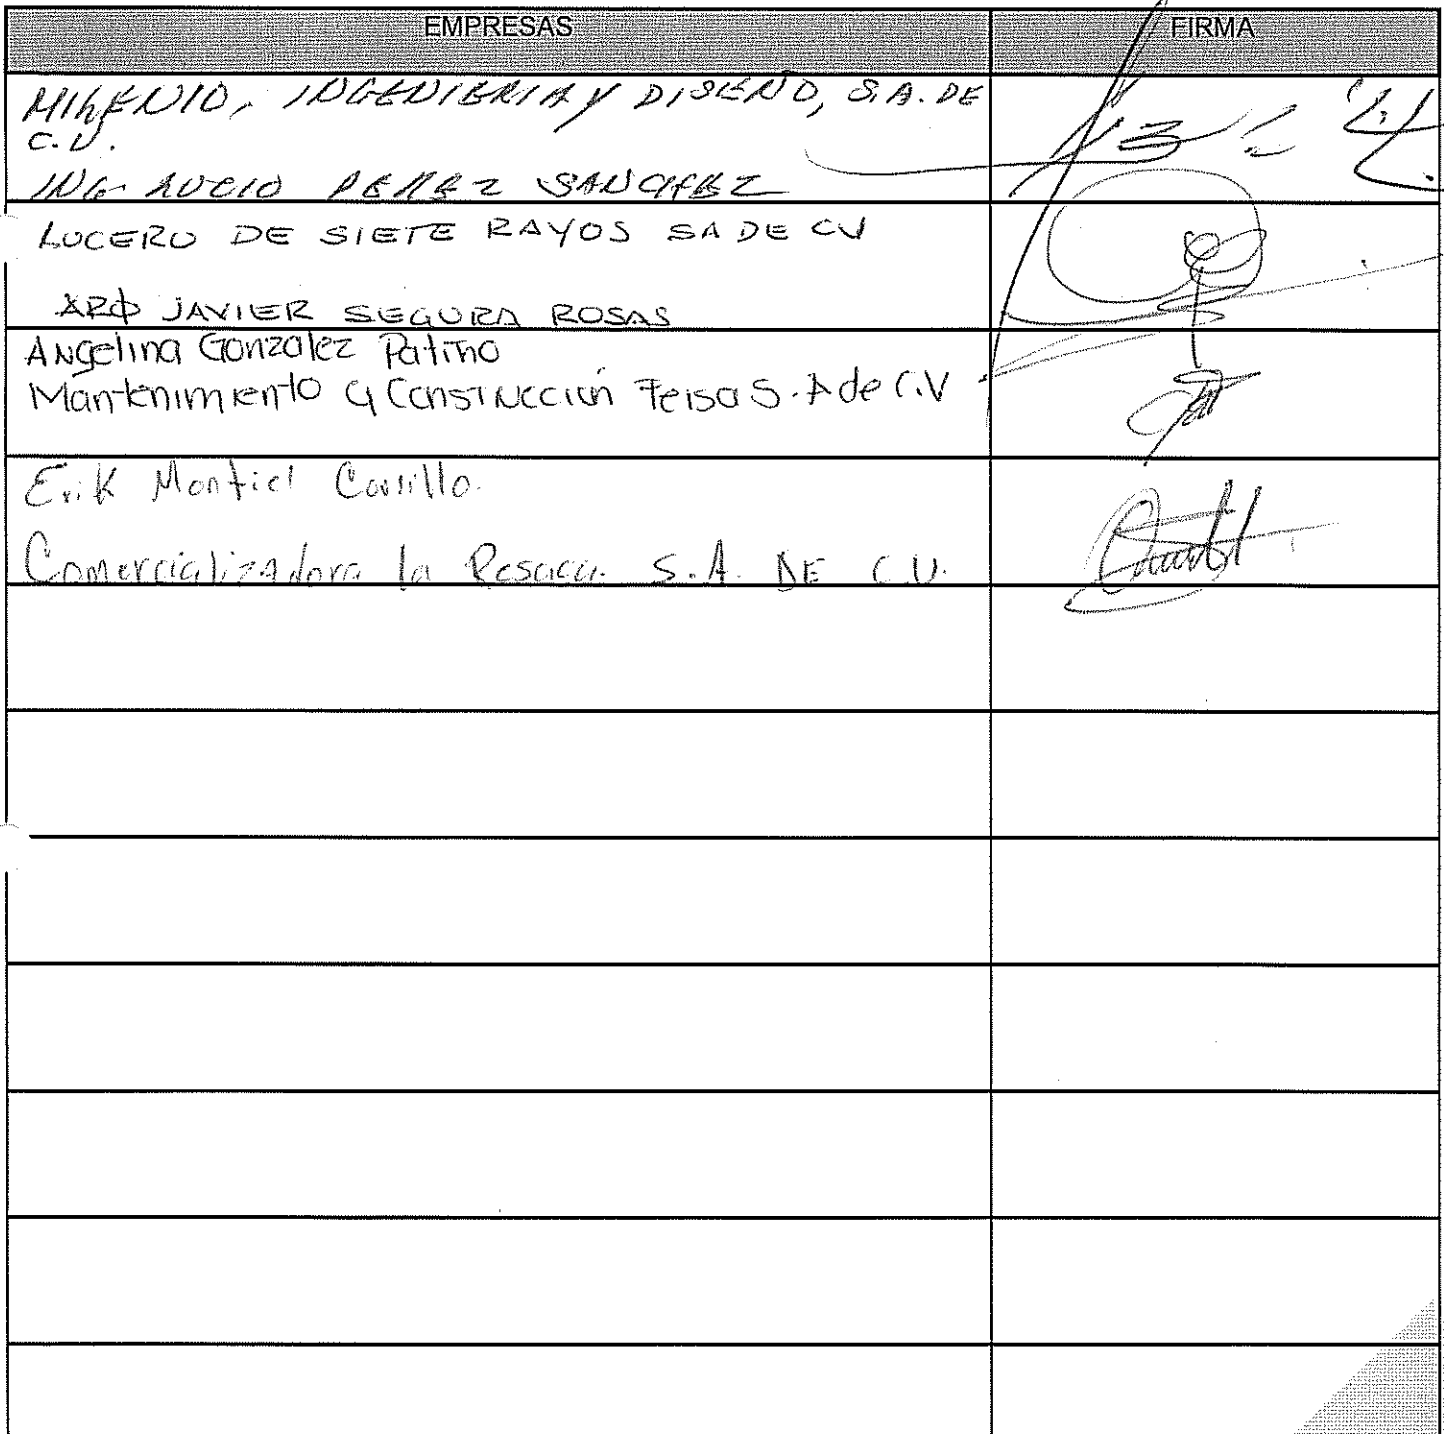 EMPRESAS
FIRMA
MILENIO, INGENIERIA Y DISEÑO, S.A. DE
C.V.
ING. LUCIO PEREZ SANCHEZ
LUCERO DE SIETE RAYOS SA DE CV
ARQ JAVIER SEGURA ROSAS
Angelina Gonzalez Patiño
Mantenimiento y Construcción Feisa S.A de C.V
Erik Montiel Carrillo.
Comercializadora la Resaca S.A. DE C.V.